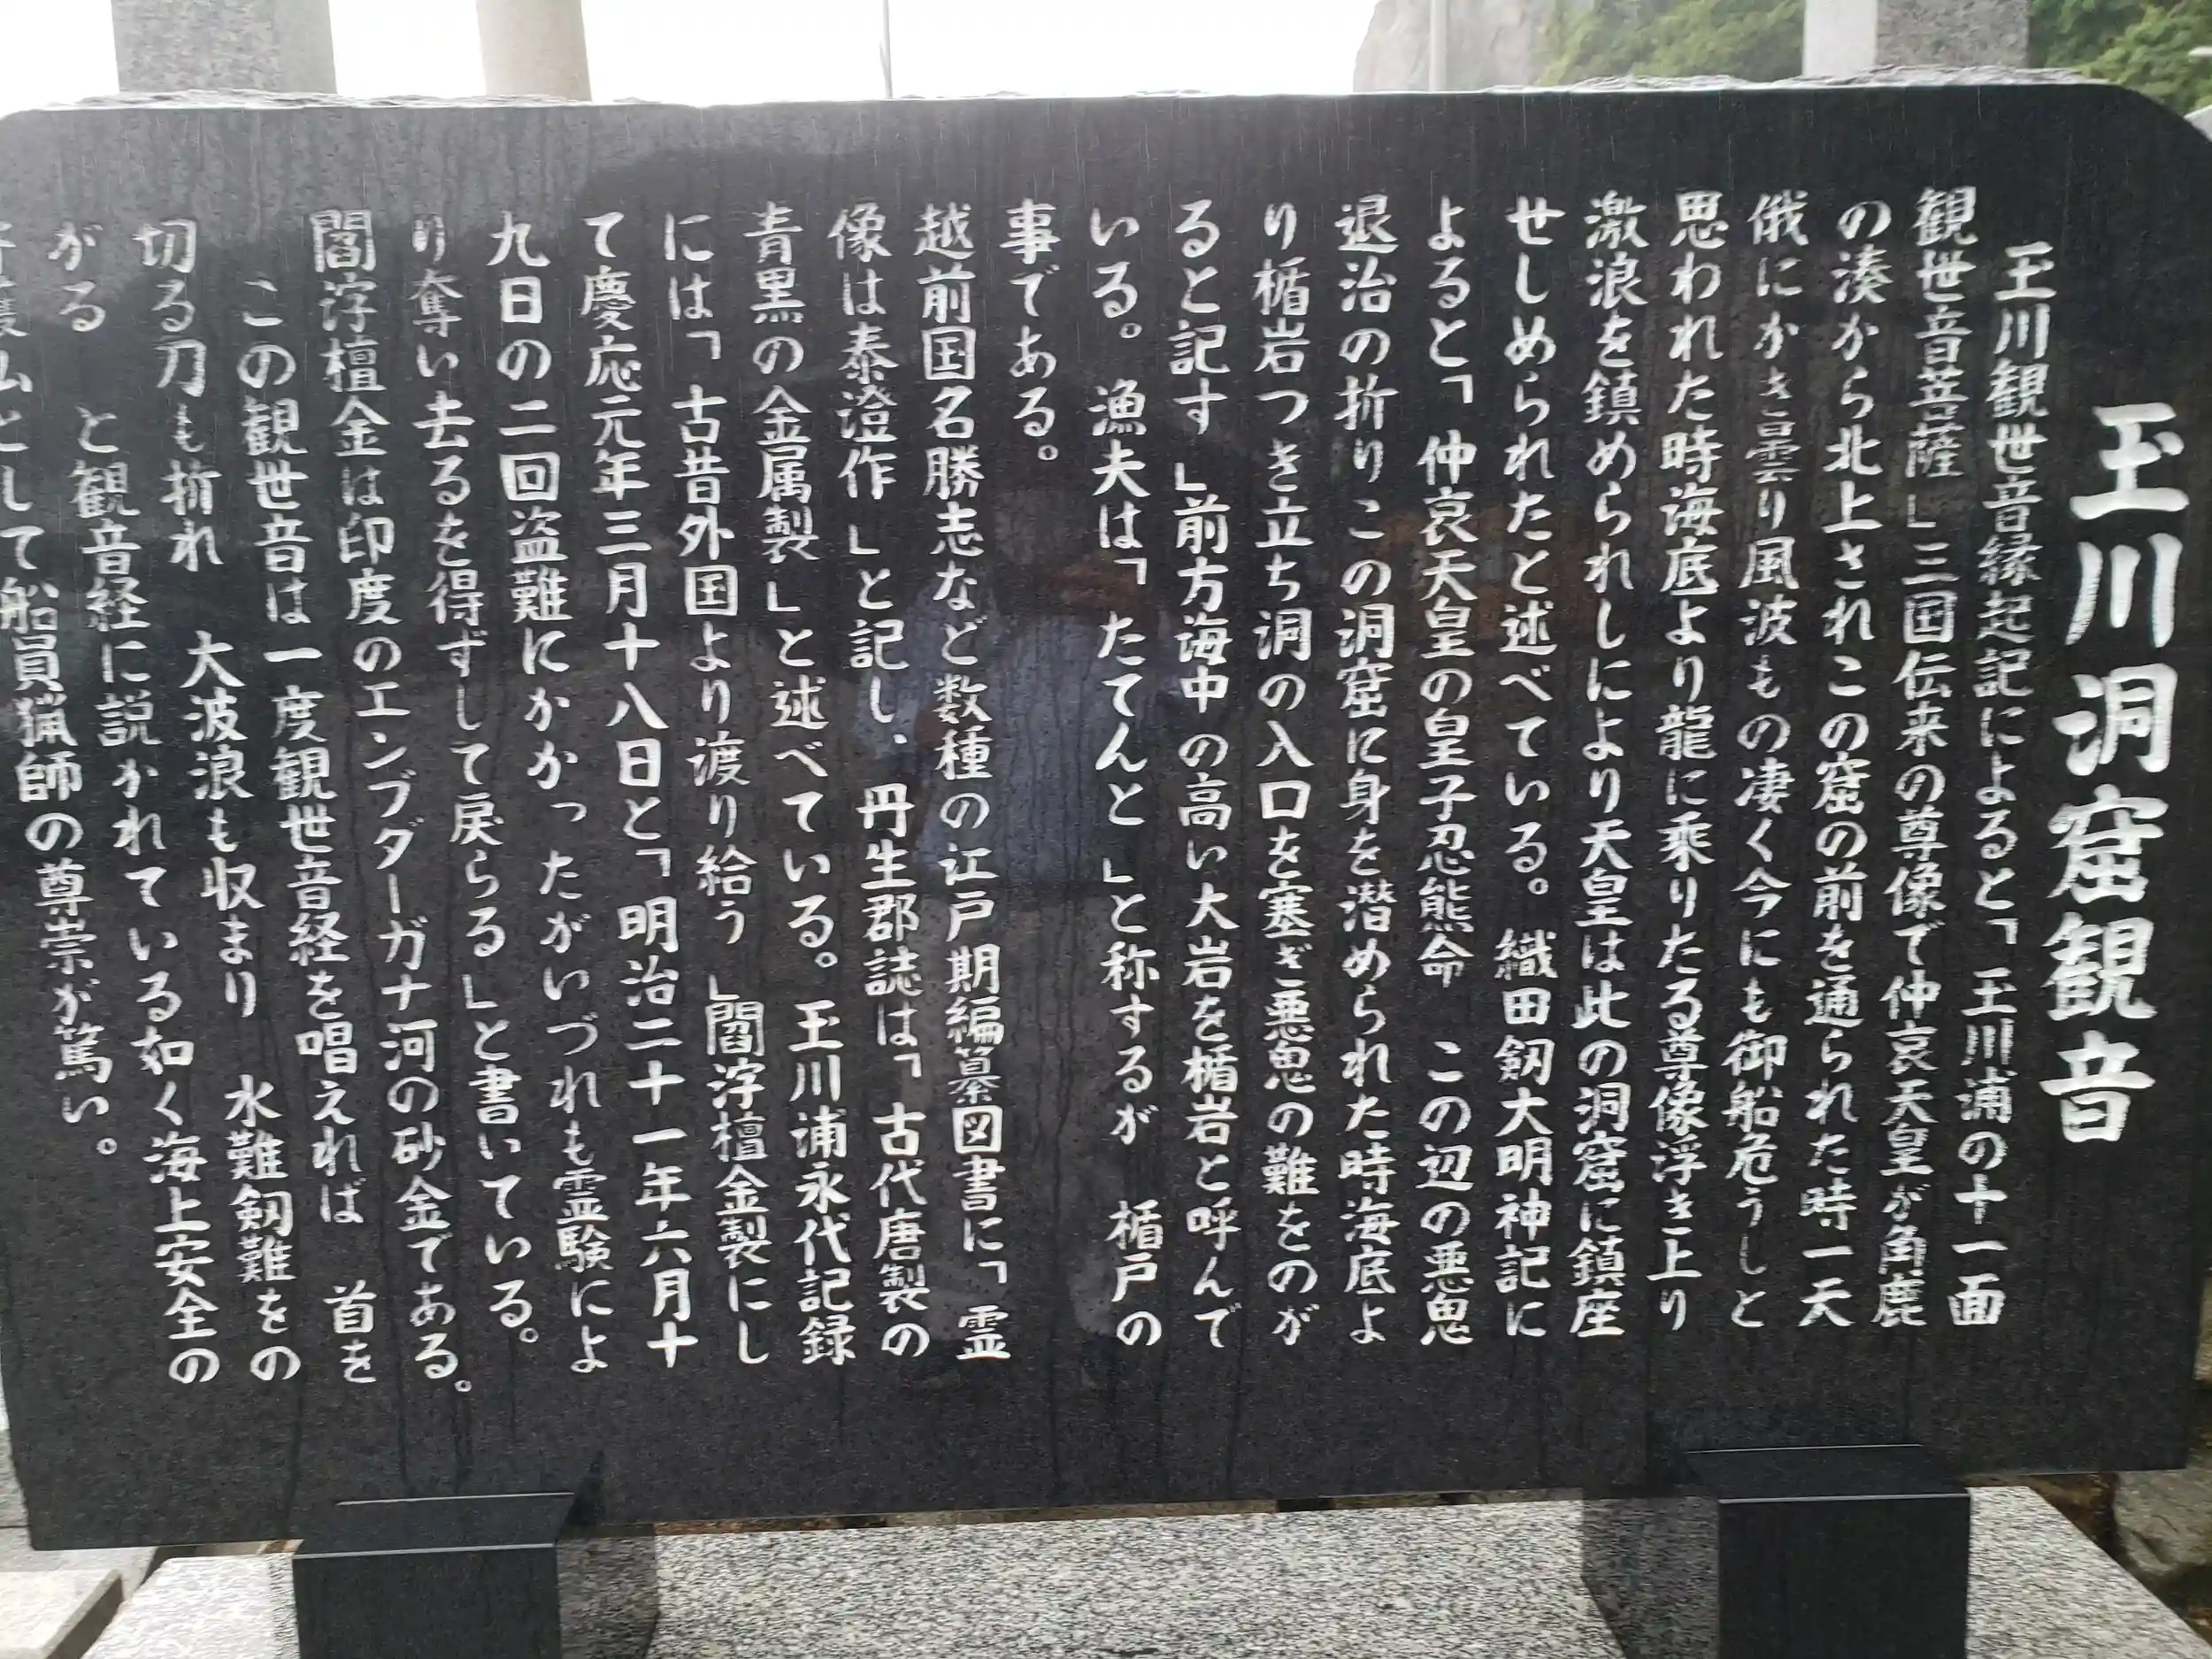 玉川洞窟観音
玉川観世音縁起記によると「玉川浦の十一面
観世音菩薩」三国伝来の尊像で仲哀天皇が角鹿
の湊から北上されこの窟の前を通られた時一天
俄にかき雲り風波もの凄く今にも御船危うしと
思われた時海底より龍に乗りたる尊像浮き上り
激浪を鎮められしにより天皇は此の洞窟に鎮座
せしめられたと述べている。織田劔大明神記に
よると「仲哀天皇の皇子忍熊命 この辺の悪鬼
退治の折りこの洞窟に身を潜められた時海底よ
り楯岩つき立ち洞の入口を塞ぎ悪鬼の難をのが
ると記す」前方海中の高い大岩を楯岩と呼んで
いる。漁夫は「たてんと」と称するが 楯戸の
事である。
越前国名勝志など数種の江戸期編纂図書に「霊
像は泰澄作」と記し、丹生郡誌は「古代唐製の
青黒の金属製」と述べている。玉川浦永代記録
には「古昔外国より渡り給う」閻浮檀金製にし
て慶応元年三月十八日と「明治二十一年六月十
九日の二回盗難にかかったがいづれも霊験によ
り奪い去るを得ずして戻らる」と書いている。
閻浮檀金は印度のエンブダーガナ河の砂金である。
この観世音は一度観世音経を唱えれば 首を
切る刀も折れ 大波浪も収まり 水難劔難をの
がる と観音経に説かれている如く海上安全の
として船員猟師の尊崇が篤い。